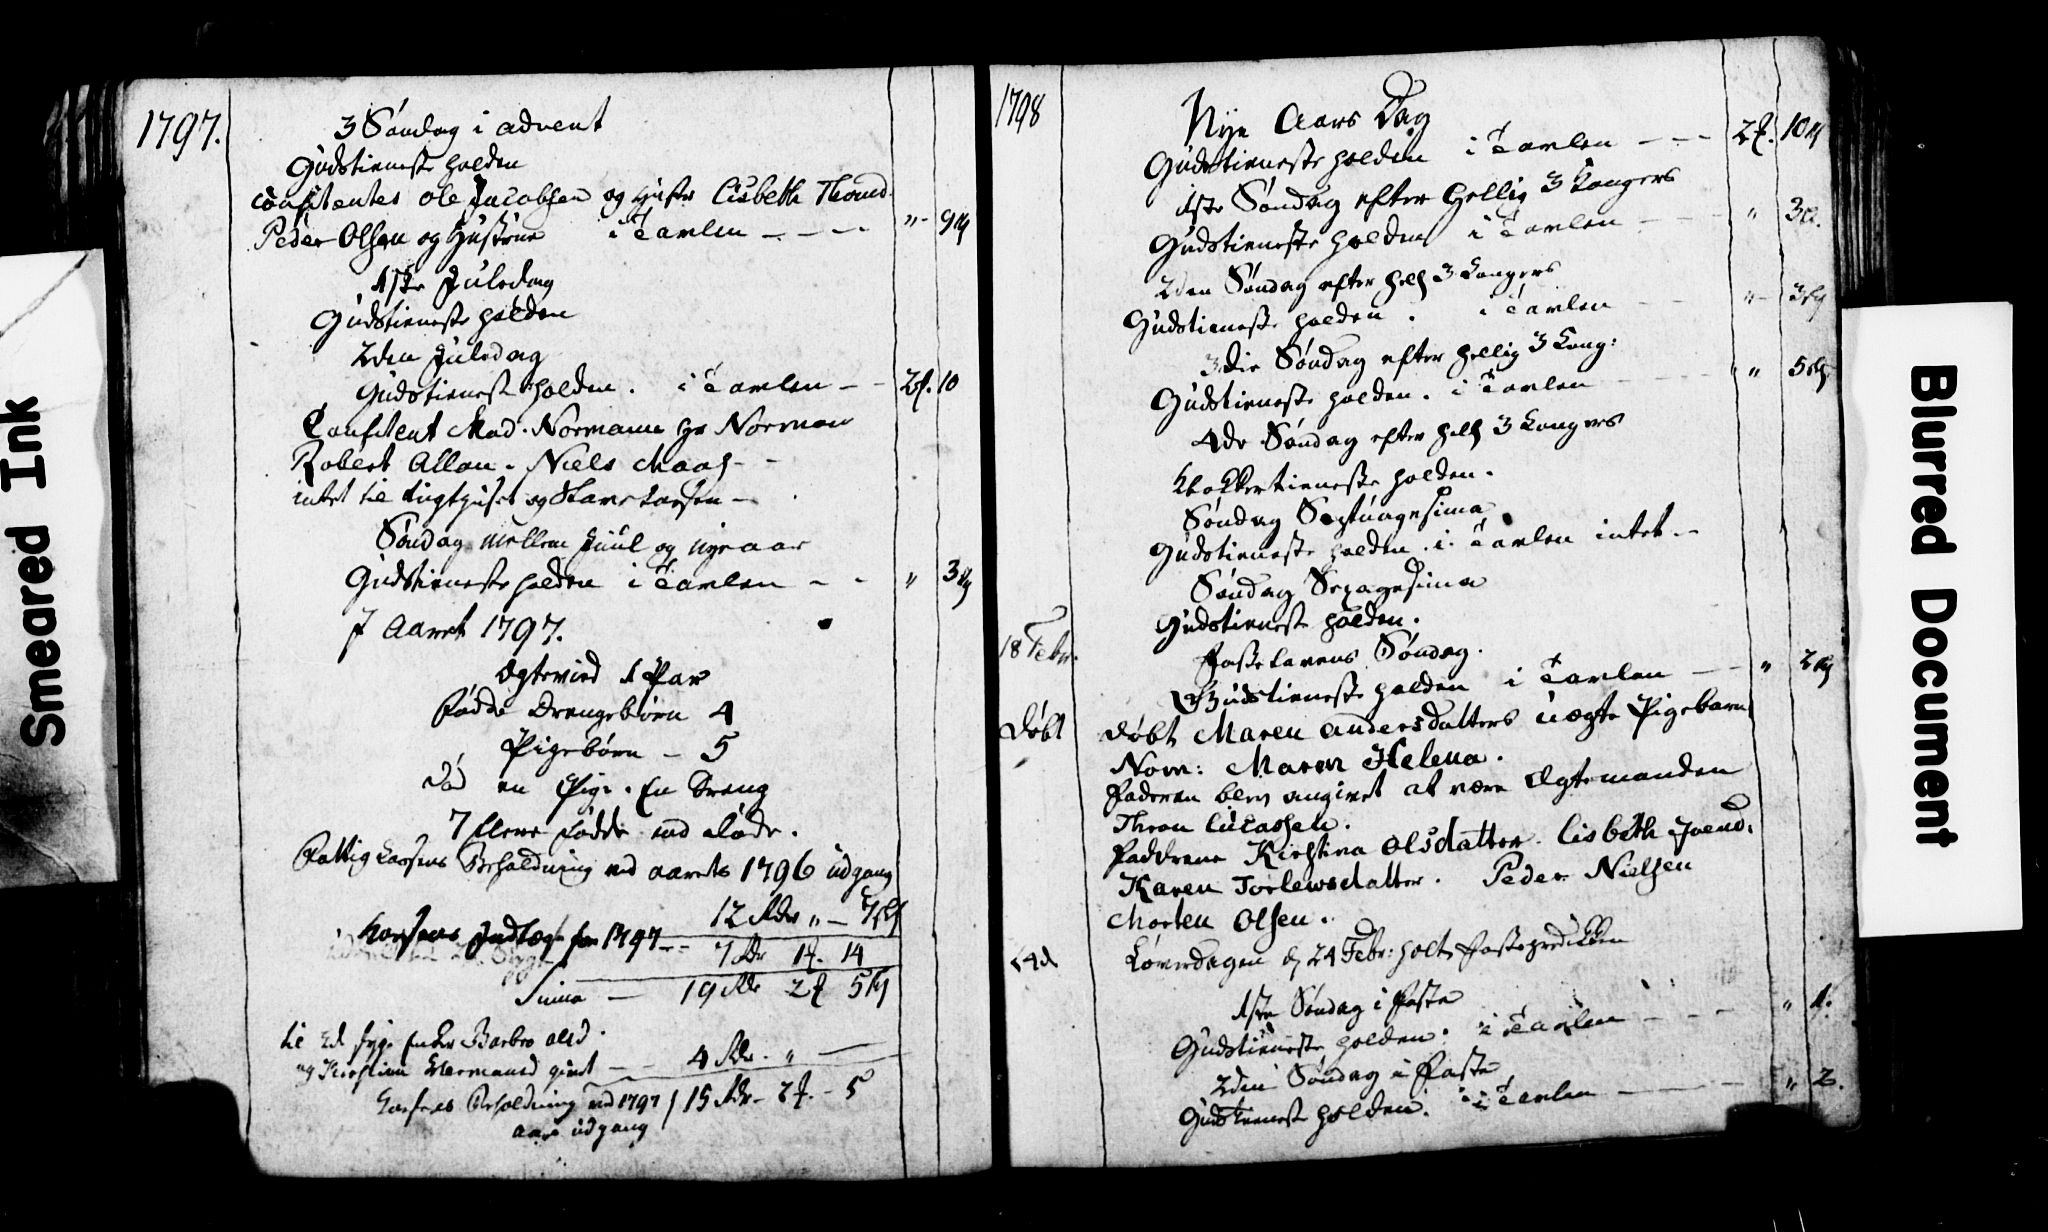 Smeared Ink
1797.
3 Søndag i advent
Gudstieneste holden
Confitentes Ole Jacobsen og Hustr Lisbeth Thomd
Peder Olsen og Hustrue i Tavlen - - - " - 9 ß
1ste Juledag
Gudstieneste holden
2den Juledag
Gudstieneste holden. i Tavlen - - 2 f. 10
Confitent Mad. Normann Hr Norman
Robert Allan. Niels Maas - -
intet til tugthuset og Slave Cassen -
Søndag mellem Juul og nyeaar
Gudstieneste holden i Tavlen - - " 3 ß
I Aaret 1797.
Ægteviet 1 Par
Fødde Drengebørn 4
Pigebørn - 5
Død en Pige. En Dreng
7 flere fødde end døde.
Fattig Cassens Beholdning ved aarets 1796 udgang
12 Rdr " -
Kassens Indtægt for 1797 - - 7 Rdr 1 f. 14
Suma - 19 Rdr 2 f 5 ß
til 2de syge Enker Barbro Olsd.
og Kirstine Hermansd givet - - 4 Rdr. " -
Cassens Beholdning ved 1797 / 15 Rdr - 2 f. - 5
aars udgang
1798
Nye Aars Dag
Gudstieneste holden i Tavlen - - - 2 f. 10 ß
1ste Søndag efter Hellig 3 Kongers
Gudstieneste holden i Tavlen - - - " 3 ß.
2den Søndag efter Hell 3 Kongers
Gudstieneste holden. i Tavlen - - " - 3 ß
3die Søndag efter Hellig 3 Kong:
Gudstieneste holden. i Tavlen - - - " 5 ß
4de Søndag efter Hell 3 Kongers
Klokkertieneste holden.
Søndag Septuagesima
Gudstieneste holden. i Tavlen intet. -
Søndag Sexagesima
Gudstieneste holden.
18 Febr.
Fastelavens Søndag.
Gudstieneste holden i Tavlen - - " 2 ß
Døbt
Døbt Maren Andersdatters uægte Pigebarn
Nom: Maren Helena.
Faderen blev angivet at være Ægtemanden
Thron Lucassen.
Faddrene Kirstina Olsdatter. Lisbeth Ivend:
Karen Torlewsdatter. Peder Nielsen
Morten Olsen.
Løverdagen d 24 Febr: holt Fasteprediken
1ste Søndag i Faste
Gudstieneste holden. i Tavlen - - - " 1.
2den Søndag i Faste
Gudstieneste holden. i Tavlen - - - " 2.
Blurred Document